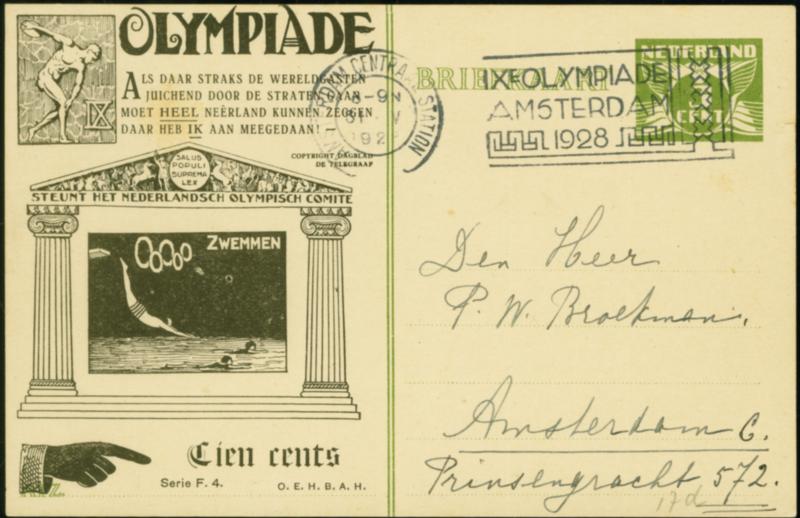 OLYMPIADE
ALS DAAR STRAKS DE WERELDGASTEN
JUICHEND DOOR DE STRATEN GAAN
MOET HEEL NEÊRLAND KUNNEN ZEGGEN
DAAR HEB IK AAN MEEGEDAAN! —
COPYRIGHT DAGBLAD
DE TELEGRAAF
IX
SALUS
POPULI
SUPREMA
LEX
STEUNT HET NEDERLANDSCH OLYMPISCH COMITE
ZWEMMEN
Tien cents
Serie F. 4.
O. E. H. B. A. H.
BRIEFKAART
NEDERLAND
CENT
CENTRAAL STATION
IXE OLYMPIADE
AMSTERDAM
1928
Den Heer
P. W. Broekman.
Amsterdam C.
Prinsengracht 572.